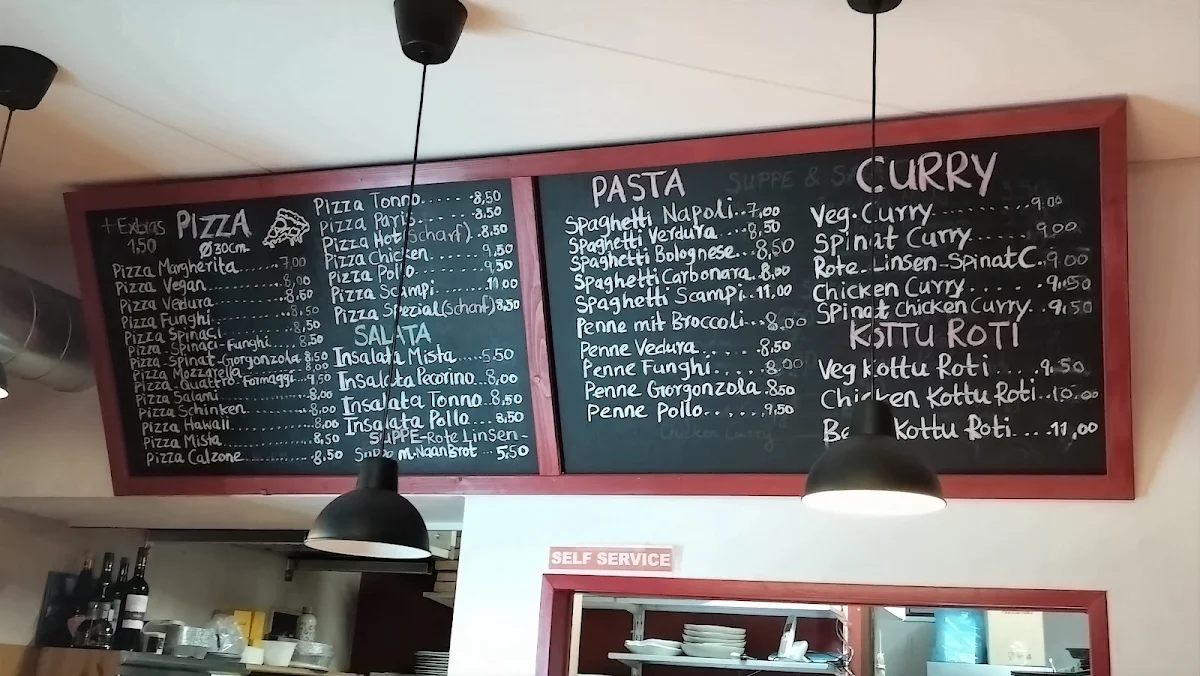 +Extras
1,50
PIZZA
Ø30cm
Pizza Margherita 7,00
Pizza Vegan 8,00
Pizza Vedura 8,50
Pizza Funghi 8,50
Pizza Spinaci 8,50
Pizza Spinaci-Funghi 8,50
Pizza Spinat-Gorgonzola 8,50
Pizza Mozzarella 8,00
Pizza Quattro-Formaggi 9,50
Pizza Salami 8,00
Pizza Schinken 8,00
Pizza Hawaii 8,00
Pizza Mista 8,50
Pizza Calzone 8,50
Pizza Tonno 8,50
Pizza Paris 8,50
Pizza Hot (Scharf) 8,50
Pizza Chicken 9,50
Pizza Pollo 9,50
Pizza Scampi 11 00
Pizza Spezial (scharf) 8,50
SALATA
Insalata Mista 5,50
Insalata Pecorino 8,00
Insalata Tonno 8,50
Insalata Pollo 8,50
SUPPE-Rote Linsen-
Suppe M. Naan Brot 5,50
PASTA
Spaghetti Napoli 7,00
Spaghetti Verdura 8,50
Spaghetti Bolognese 8,50
Spaghetti Carbonara 8,00
Spaghetti Scampi 11,00
Penne mit Broccoli 8,00
Penne Vedura 8,50
Penne Funghi 8,00
Penne Giorgonzola 8,50
Penne Pollo 9,50
Chicken Curry
SUPPE &
CURRY
Veg. Curry 9,00
Spinat Curry 9,00
Rote-Linsen-Spinat C. 9,00
Chicken Curry 9,50
Spinat Chicken Curry 9,50
KOTTU ROTI
Veg Kottu Roti 9,50
Chicken Kottu Roti 10,00
Kottu Roti 11,00
SELF SERVICE